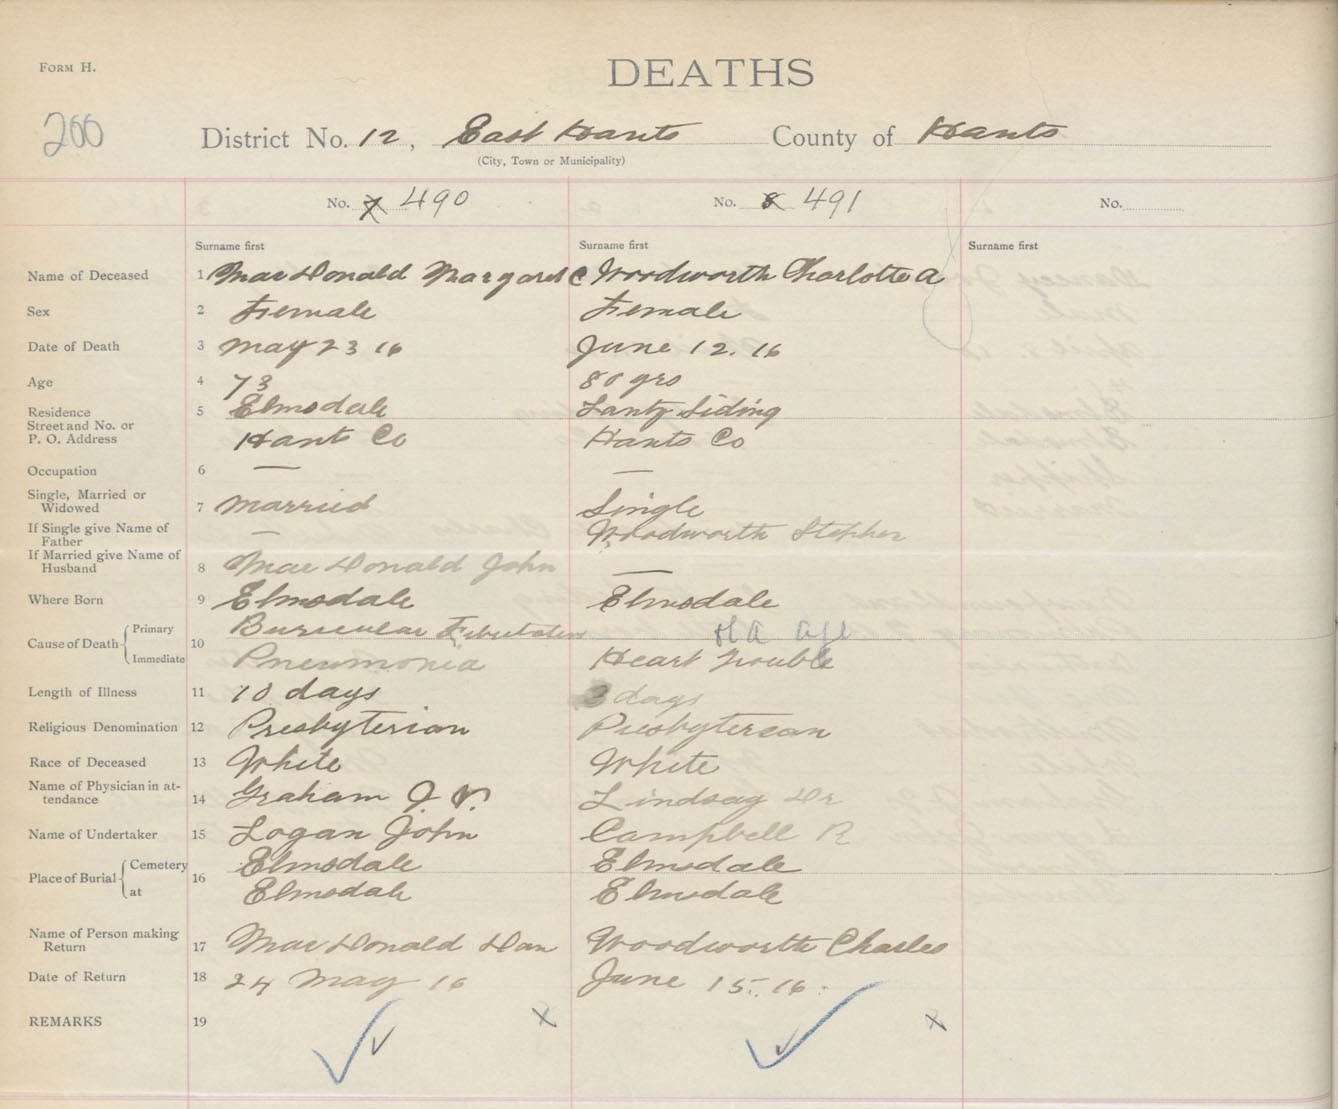 FORM H.
DEATHS
200
District No. 12, East Hants County of Hants
(City, Town or Municipality)
No. 7 490 No. 8 491 No.
Surname first Surname first Surname first
Name of Deceased 1 MacDonald Margaret C Woodworth Charlotte A
Sex 2 Female Female
Date of Death 3 May 23 16 June 12. 16
Age 4 73 80 yrs
Residence 5 Elmsdale Lantz Siding
Street and No. or
P. O. Address Hants Co Hants Co
Occupation 6 — —
Single, Married or
Widowed 7 Married Single
If Single give Name of
Father — Woodworth Stephen
If Married give Name of
Husband 8 MacDonald John —
Where Born 9 Elmsdale Elmsdale
Cause of Death Primary Auricular Old age
10
Immediate Pneumonia Heart Trouble
Length of Illness 11 10 days 3 days
Religious Denomination 12 Presbyterian Presbyterian
Race of Deceased 13 White White
Name of Physician in at-
tendance 14 Graham J. V. Lindsay Dr
Name of Undertaker 15 Logan John Campbell R
Place of Burial Cemetery Elmsdale Elmsdale
16
at Elmsdale Elmsdale
Name of Person making
Return 17 MacDonald Dan Woodworth Charles
Date of Return 18 24 May 16 June 15. 16.
REMARKS 19 x x